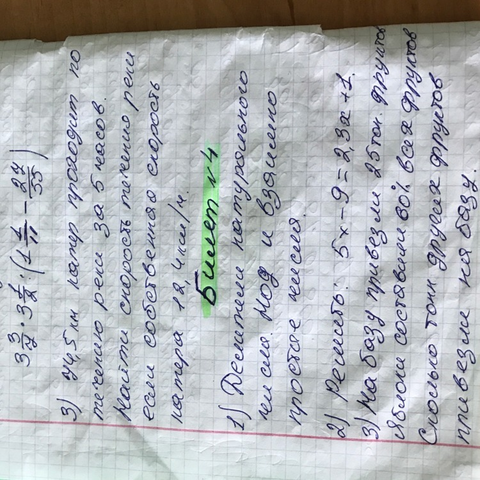 3 3/7 · 3 1/2 · (1 1/11 - 24/55)
3) 74,5 км катер проходит по
течению реки за 5 часов.
Найти скорость течению реки
если собственная скорость
катера 12,4 км/ч.
Билет №4
1) Делители натурального
числа. НОД и взаимно
простые числа.
2) Решить: 5x-9=2,3x+1.
3) На базу привезли 25 тон. фруктов
Яблоки составили 60% всех фруктов
Сколько тонн других фруктов
привезли на базу.